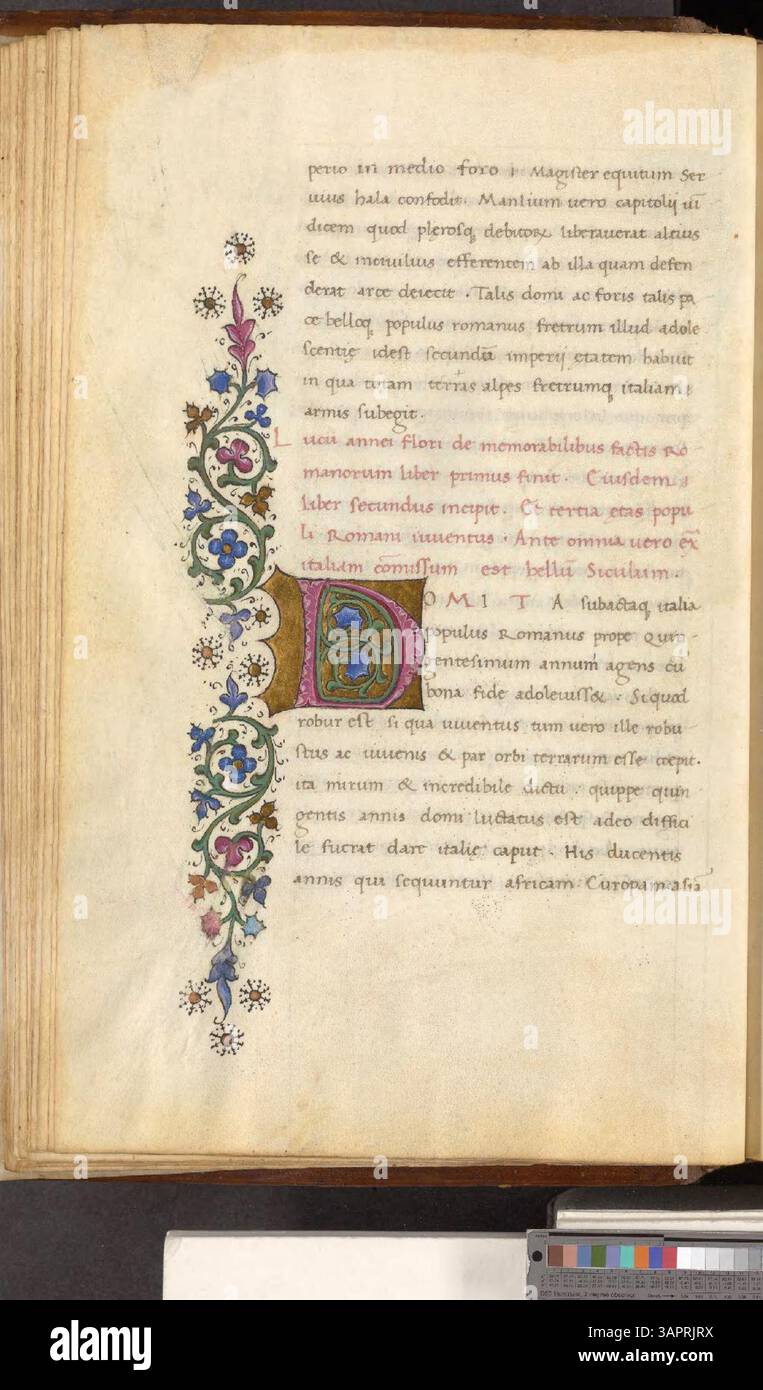 perio in medio foro ı Magister equitum Ser
uius hala confodit. Manlium uero capitolij ui
dicem quod plerosq debitorꝝ liberauerat altius
se & inciuilius efferentem ab illa quam defen
derat arce deiecit. Talis domi ac foris talis pa
ce belloq populus romanus fretrum illud adole
scentię idest secundā imperii etatem habuit
in qua totam terras alpes fretrumq italiam
armis subegit.
Lucii annei flori de memorabilibus factis Ro
manorum liber primus finit. Eiusdem
liber secundus incipit. Et tertia etas popu
li Romani iuuentus. Ante omnia uero ex̄
italiam com̄issum est bellū Siculum.
DOMITA subactaq italia
populus Romanus prope quin
gentesimum annum agens cū
bona fide adoleuiss&. Si quod
robur est si qua iuuentus tum uero ille robu
stus ac iuuenis & par orbi terrarum esse cepit.
ita mirum & incredibile dictu. quippe quin
gentis annis domi luctatus est adeo diffici
le fuerat dare italię caput. His ducentis
annis qui sequuntur africam. Europam asiā
alamy
alamy
Image ID: 3APRJRX
www.alamy.com